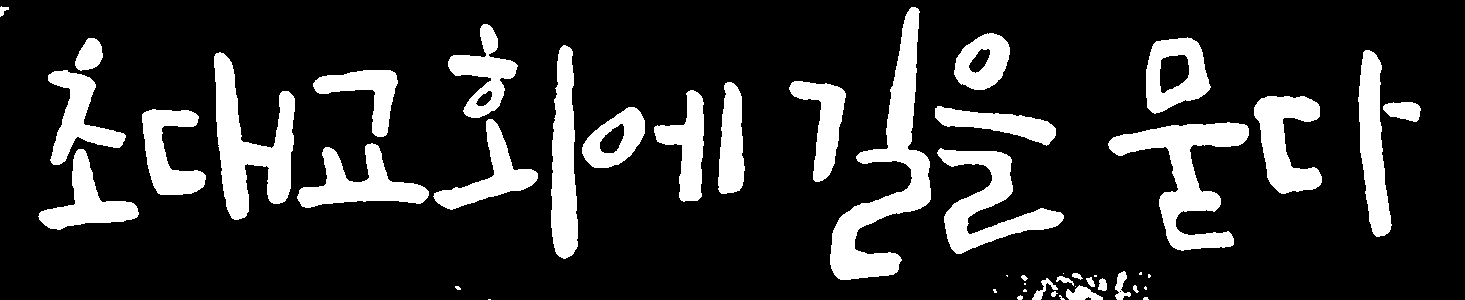 초대교회에 길을 묻다